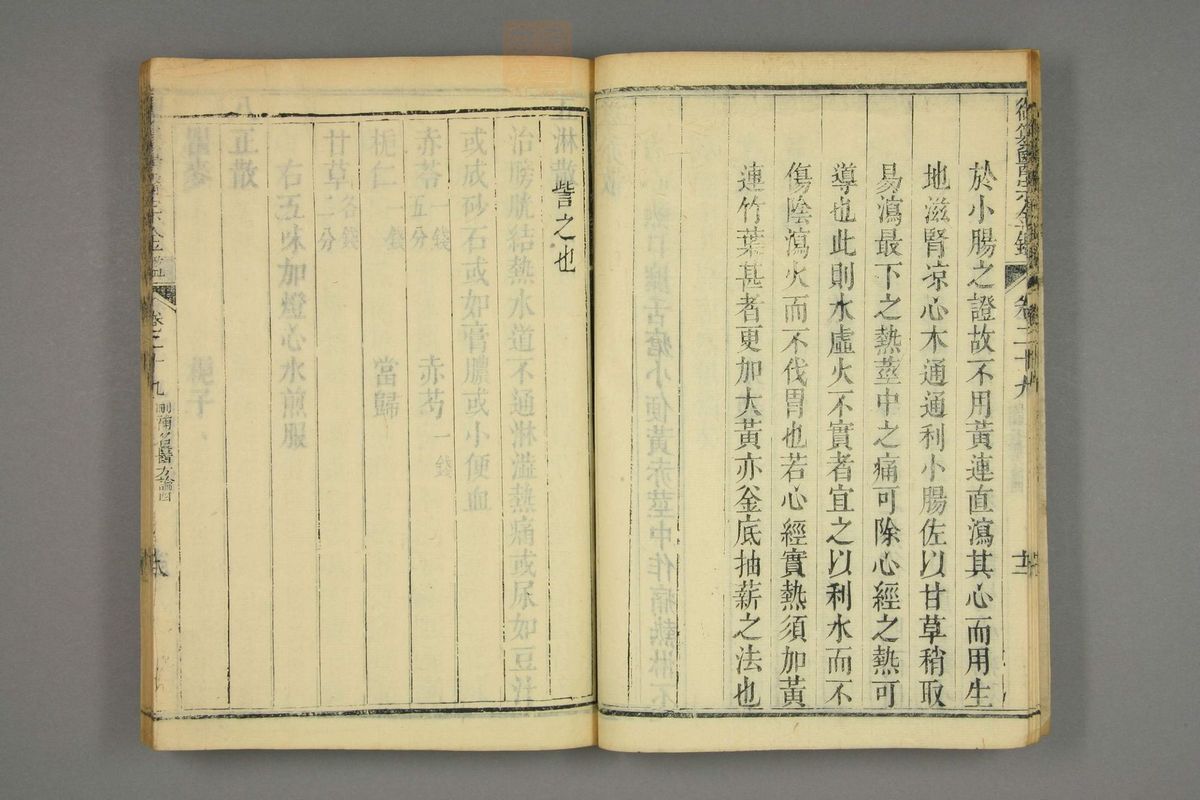 於小腸之證故不用黃連直瀉其心而用生
地滋腎凉心木通通利小腸佐以甘草稍取
易瀉最下之熱莖中之痛可除心經之熱可
導也此則水虛火不實者宜之以利水而不
傷陰瀉火而不伐胃也若心經實熱須加黃
連竹葉甚者更加大黃亦釜底抽薪之法也
卷二十九
訾之也
五淋散
治膀胱結熱水道不通淋澁熱痛或尿如豆汁
或成砂石或如膏膿或小便血
赤苓一錢五分 赤芍一錢
梔仁一錢 當歸
甘草各二錢分
右五味加燈心水煎服
八正散
瞿麥 梔子
卷二十九 刪補名醫方論四